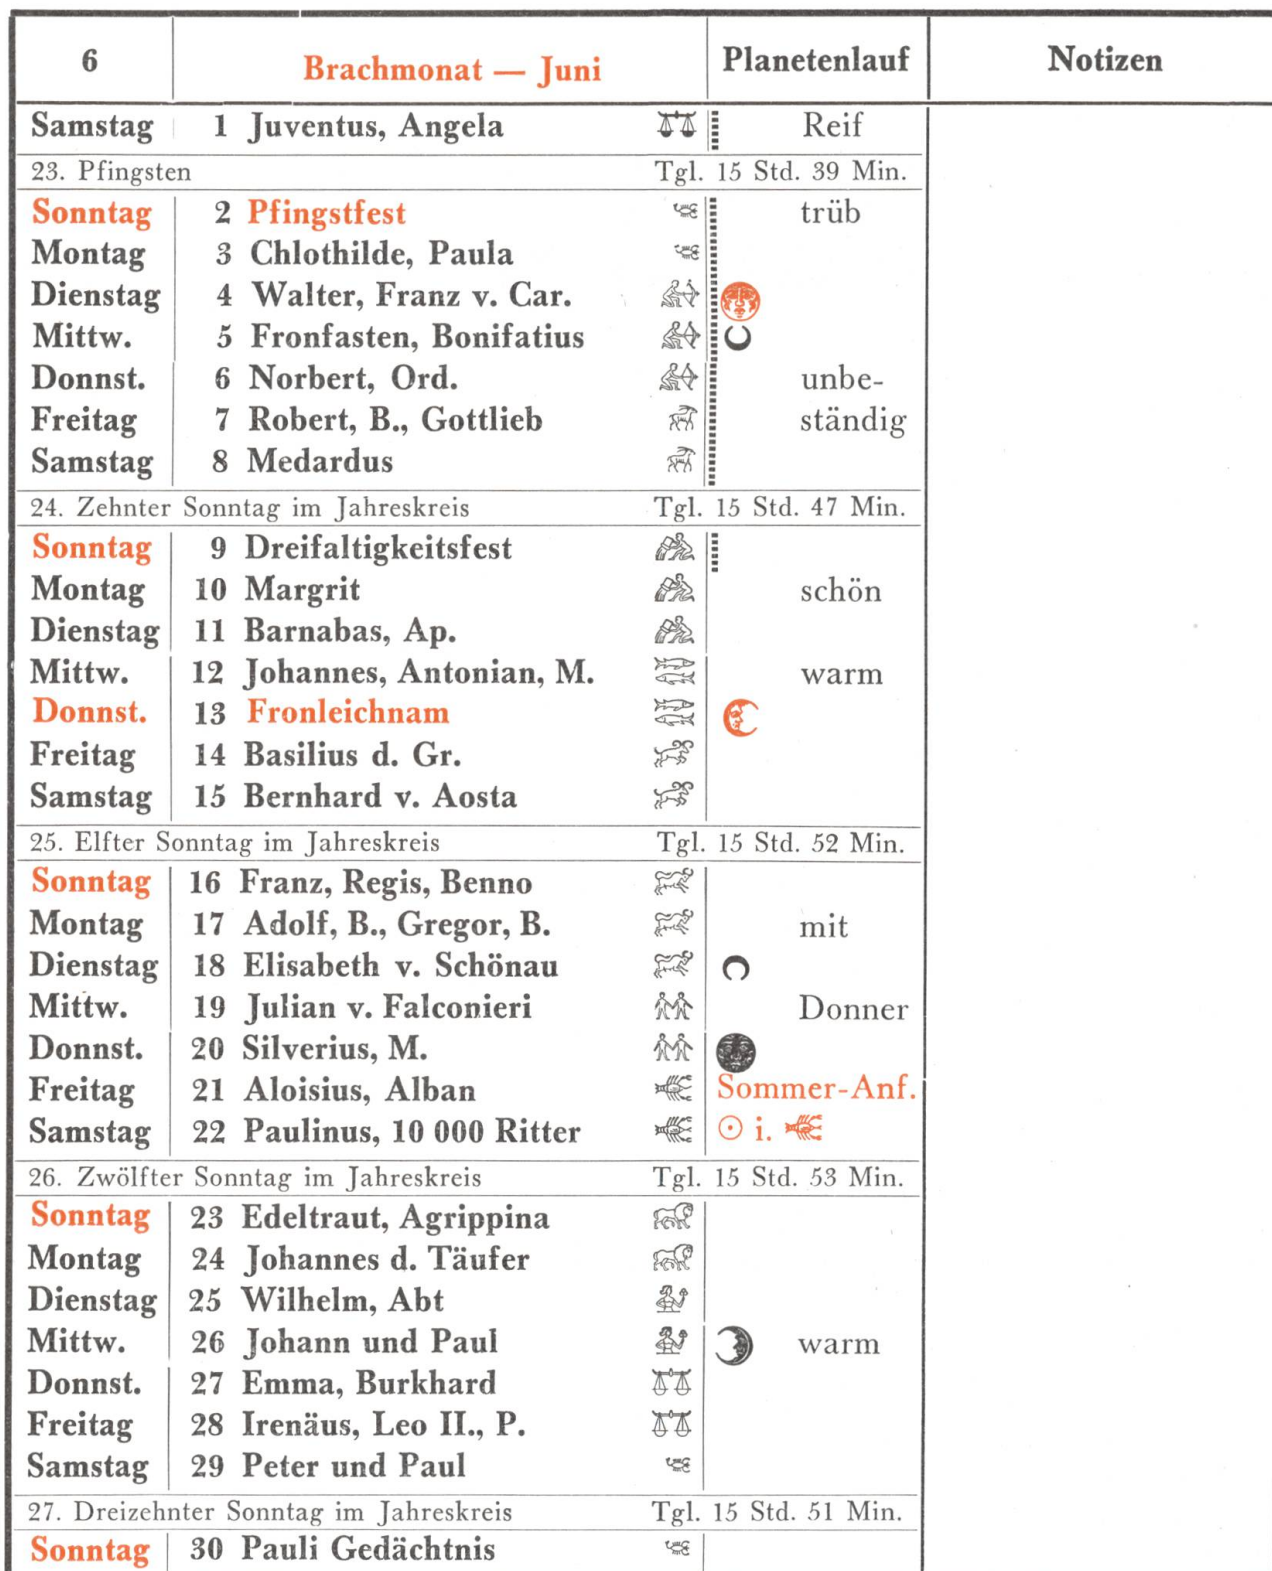 6 Brachmonat — Juni Planetenlauf Notizen
Samstag 1 Juventus, Angela Reif
23. Pfingsten Tgl. 15 Std. 39 Min.
Sonntag 2 Pfingstfest trüb
Montag 3 Chlothilde, Paula
Dienstag 4 Walter, Franz v. Car.
Mittw. 5 Fronfasten, Bonifatius
Donnst. 6 Norbert, Ord. unbe-
Freitag 7 Robert, B., Gottlieb ständig
Samstag 8 Medardus
24. Zehnter Sonntag im Jahreskreis Tgl. 15 Std. 47 Min.
Sonntag 9 Dreifaltigkeitsfest
Montag 10 Margrit schön
Dienstag 11 Barnabas, Ap.
Mittw. 12 Johannes, Antonian, M. warm
Donnst. 13 Fronleichnam
Freitag 14 Basilius d. Gr.
Samstag 15 Bernhard v. Aosta
25. Elfter Sonntag im Jahreskreis Tgl. 15 Std. 52 Min.
Sonntag 16 Franz, Regis, Benno
Montag 17 Adolf, B., Gregor, B. mit
Dienstag 18 Elisabeth v. Schönau
Mittw. 19 Julian v. Falconieri Donner
Donnst. 20 Silverius, M.
Freitag 21 Aloisius, Alban Sommer-Anf.
Samstag 22 Paulinus, 10 000 Ritter ☉ i.
26. Zwölfter Sonntag im Jahreskreis Tgl. 15 Std. 53 Min.
Sonntag 23 Edeltraut, Agrippina
Montag 24 Johannes d. Täufer
Dienstag 25 Wilhelm, Abt
Mittw. 26 Johann und Paul warm
Donnst. 27 Emma, Burkhard
Freitag 28 Irenäus, Leo II., P.
Samstag 29 Peter und Paul
27. Dreizehnter Sonntag im Jahreskreis Tgl. 15 Std. 51 Min.
Sonntag 30 Pauli Gedächtnis